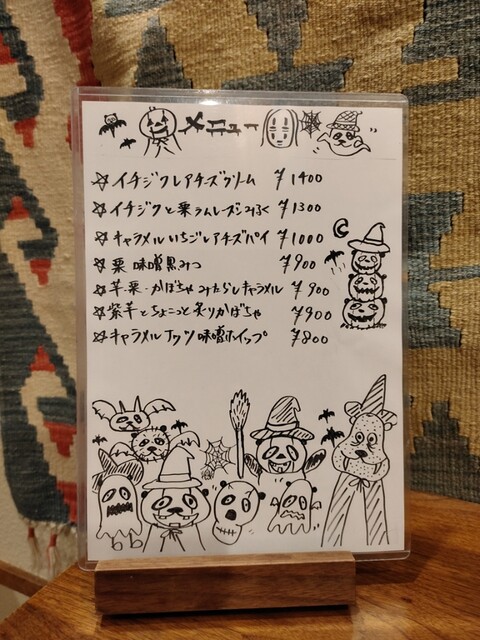 メニュー
☆イチジクレアチーズクリーム ¥1400
☆イチジクと栗ラムレーズンみるく ¥1300
☆キャラメルいちごレアチーズパイ ¥1000
☆栗味噌黒みつ ¥900
☆芋栗・かぼちゃみたらしキャラメル ¥900
☆紫芋とちょこっと炙りかぼちゃ ¥900
☆キャラメルナッツ味噌ホイップ ¥800